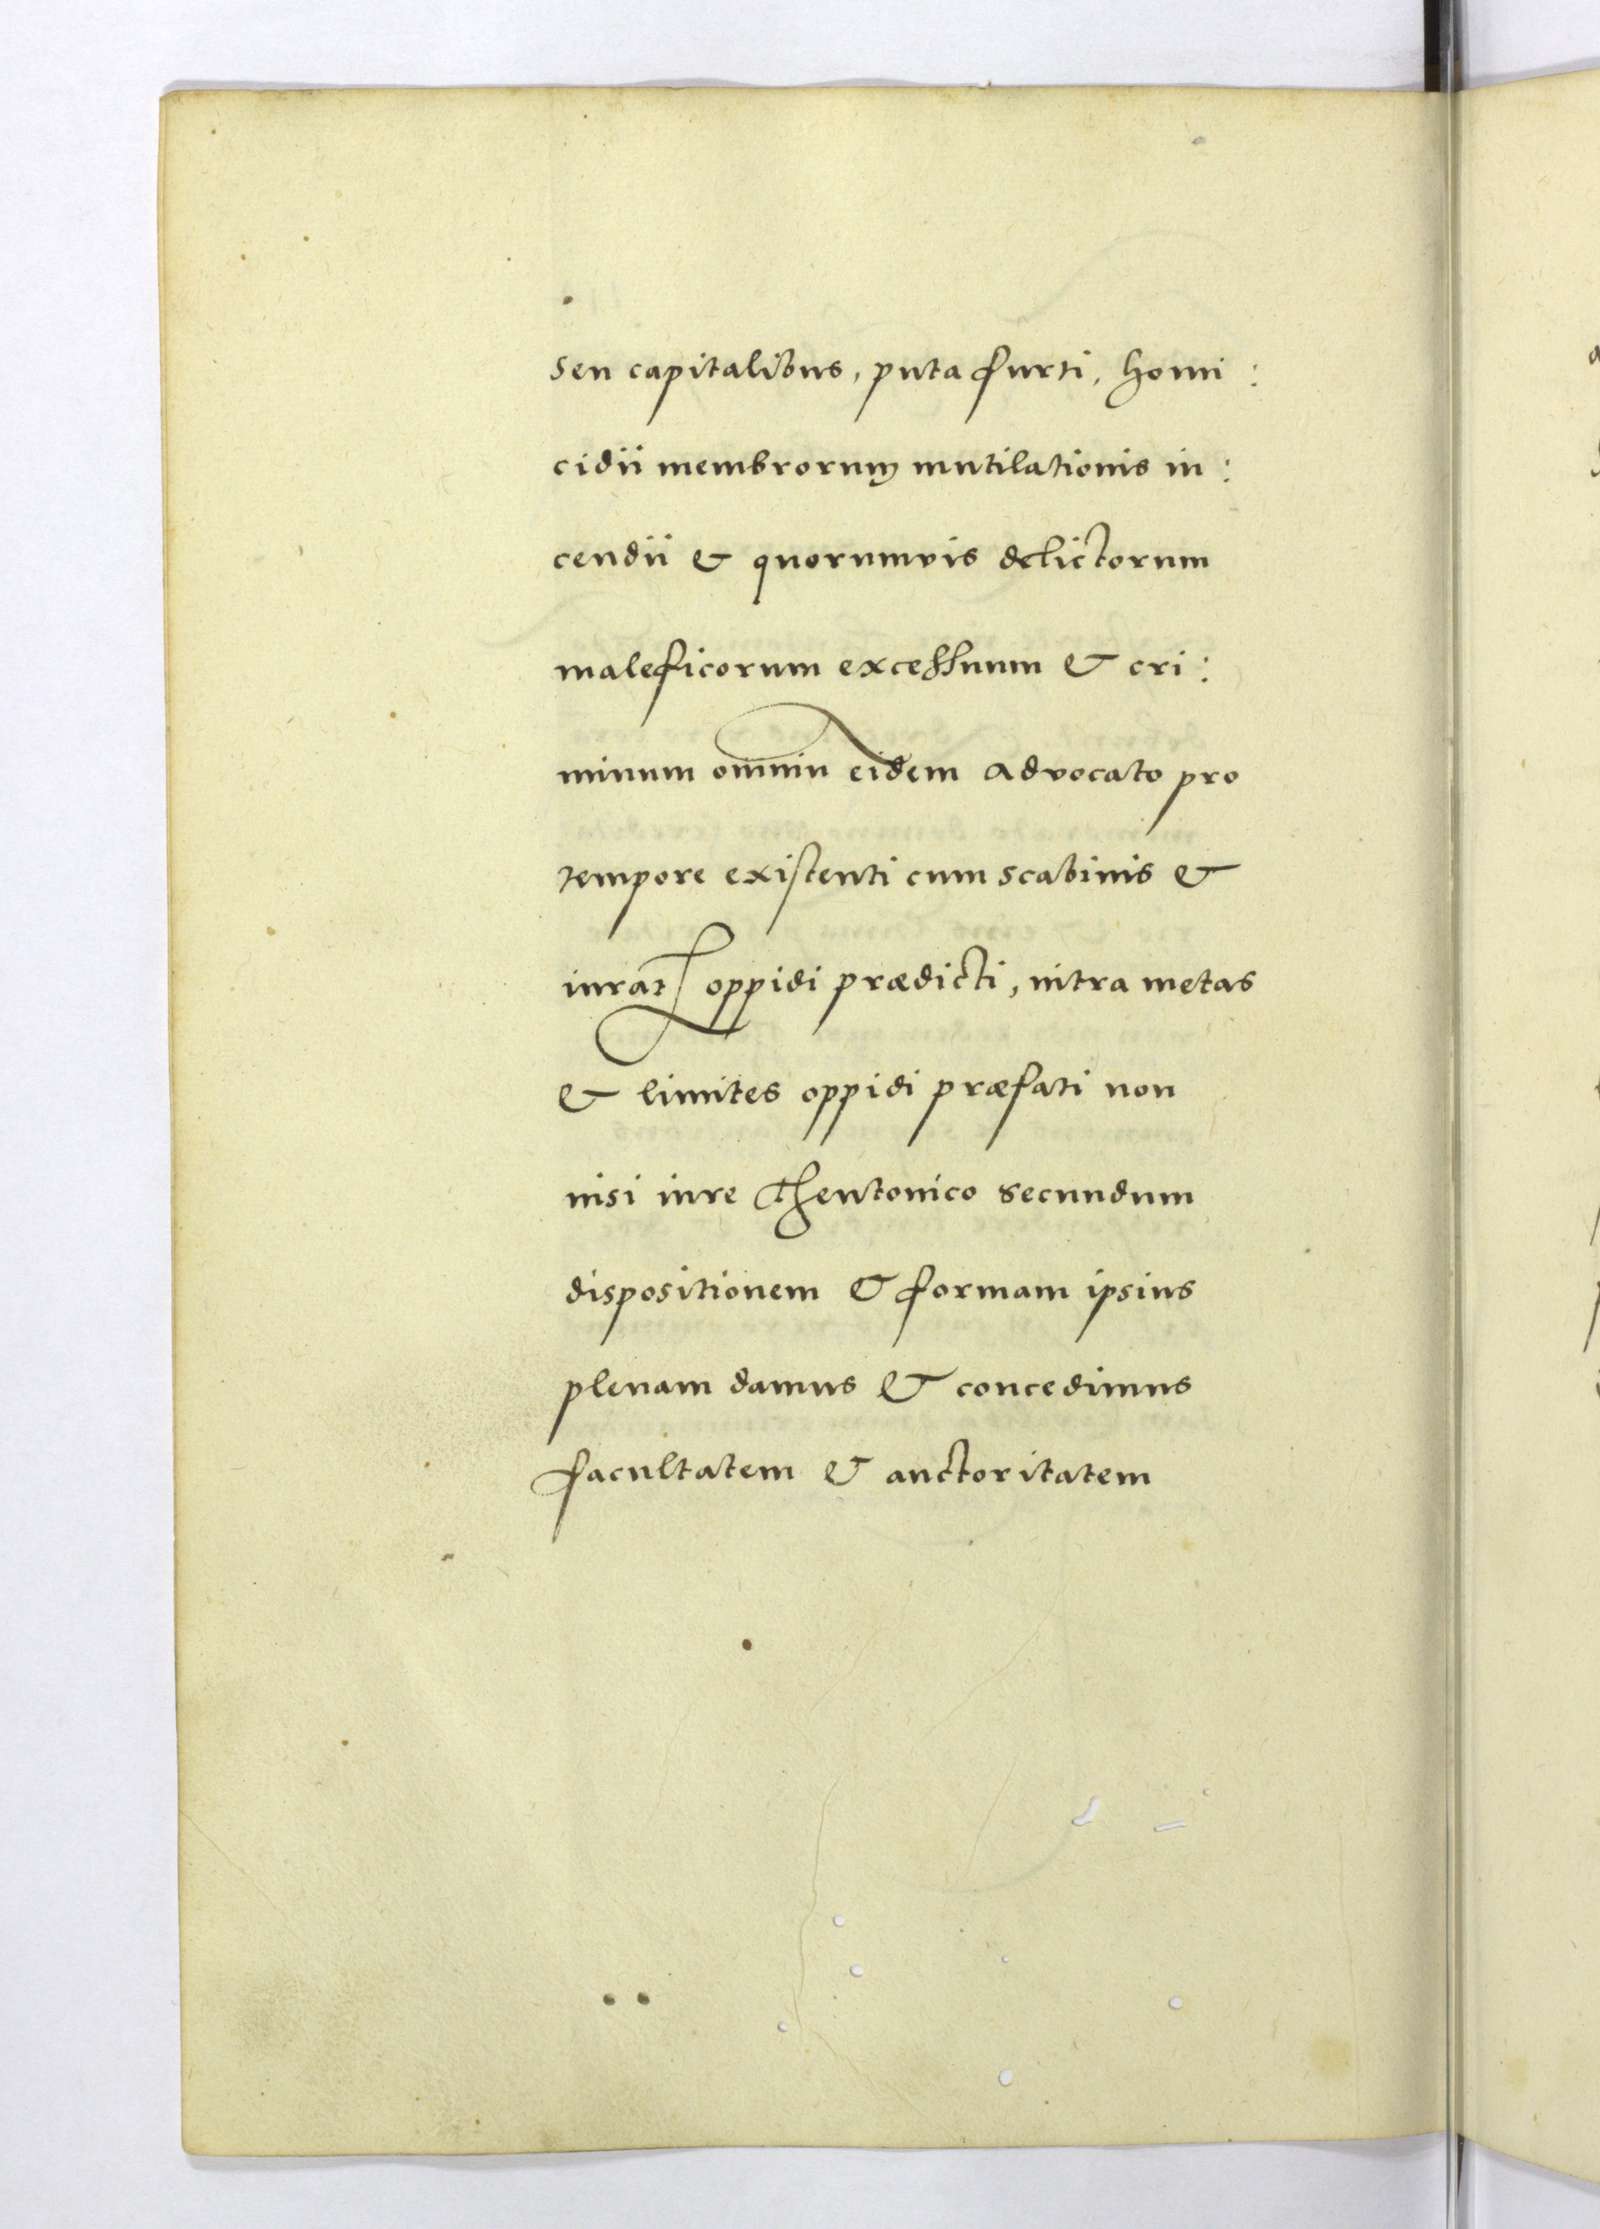 seu capitalibus, puta furti, homi:
cidii membrorum mutilationis in:
cendii & quorumvis delictorum
maleficorum excessuum & cri:
minum omniu eidem advocato pro
tempore existenti cum scabinis &
iurat oppidi prædicti, intra metas
& limites oppidi præfati non
nisi iure theutonico secundum
dispositionem & formam ipsius
plenam damus & concedimus
facultatem & auctoritatem